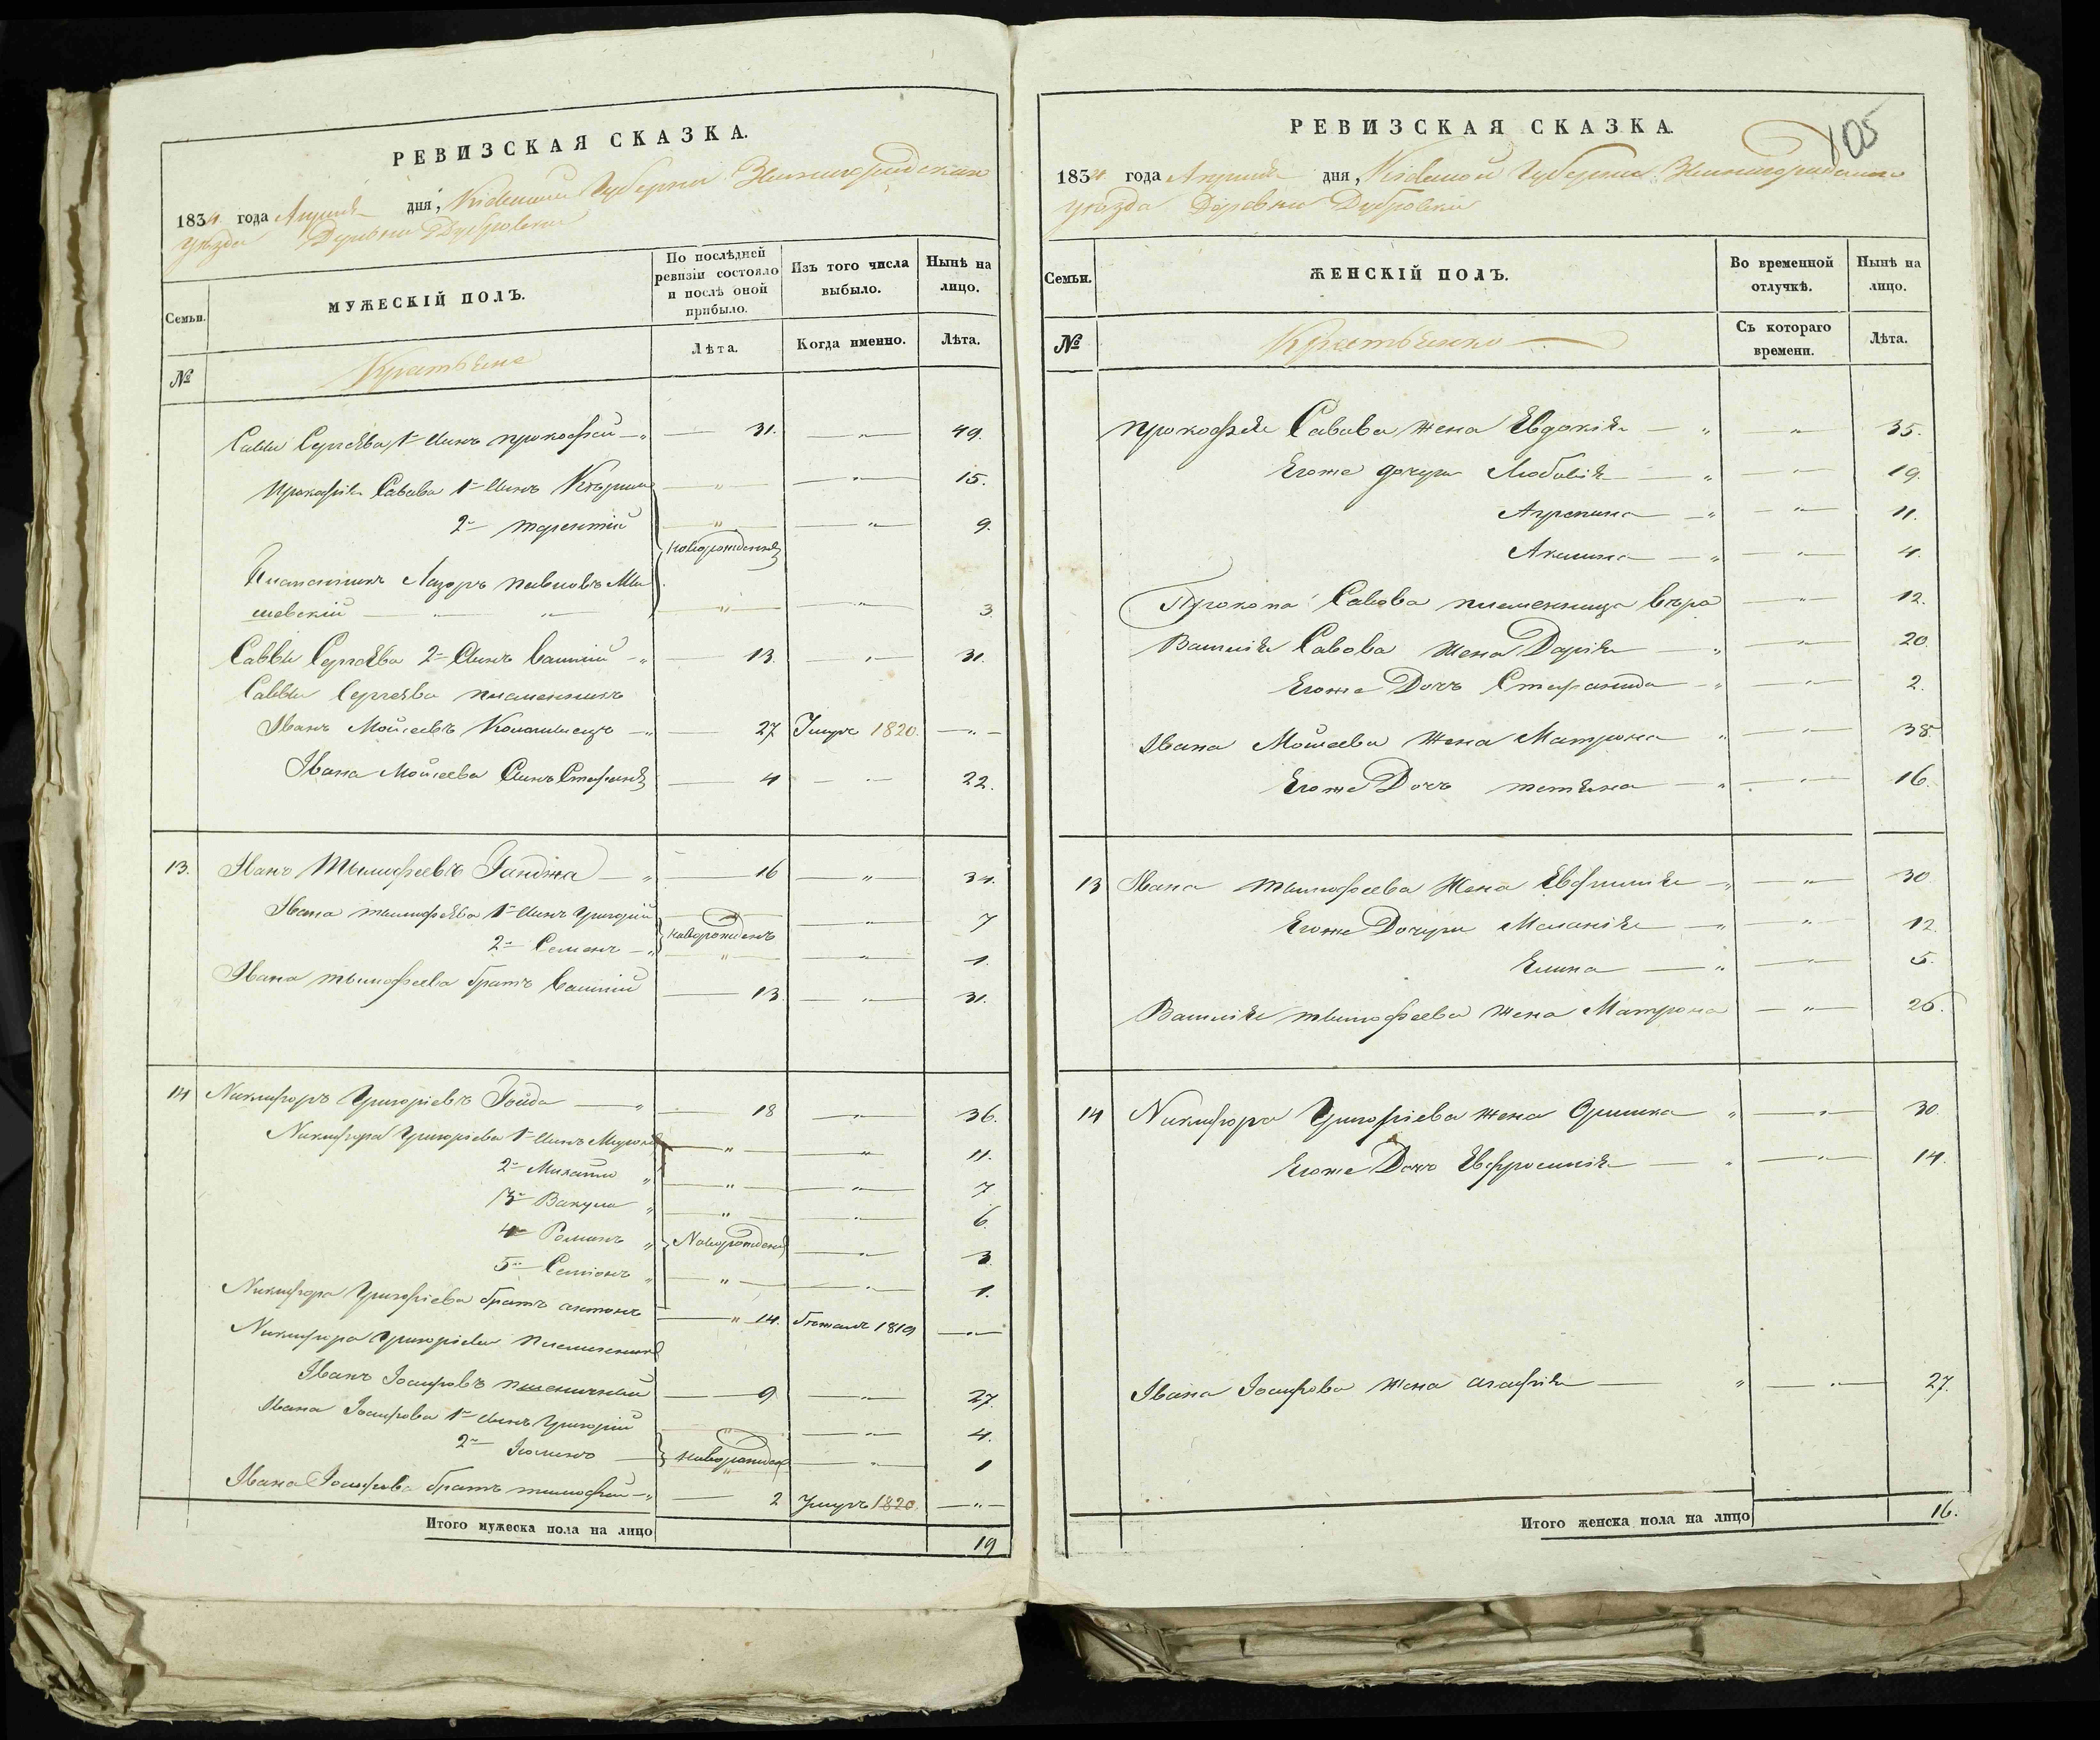 РЕВИЗСКАЯ СКАЗКА.
1834 года Апреля дня, Кіевской Губерніи Звенигородскаго
уѣзда Деревни Дубровки
Семьи.
МУЖЕСКІЙ ПОЛЪ.
По послѣдней ревизіи состояло и послѣ оной прибыло.
Изъ того числа выбыло.
Нынѣ на лицо.
№
Крестьяне
Лѣта.
Когда именно.
Лѣта.
Саввы Сергѣева 1й Сынъ Прокофій — 31. — 49.
Прокофія Савова 1й Сынъ — 15.
2й Терентій — 9.
новорожденны
Племянникъ Лазорь Павловъ
шевскій — 3.
Саввы Сергѣева 2й Сынъ Василій — 13. — 31.
Саввы Сергѣева племянникъ
Іванъ Мойсеевъ Коломіецъ — 27 Умре 1820. —
Івана Мойсеева Сынъ Стефанъ — 4 — 22.
13. Іванъ Тымофеевъ Ганджа — 16 — 34.
Івана тимофѣева 1й Сынъ Григорій — 7
2й Семенъ — 1.
новорожденъ
Івана тымофеева братъ Василій — 13. — 31.
14 Никифоръ Григоріевъ Гойда — 18 — 36.
Никифора Григоріева 1й Сынъ Миронъ — 11.
2й Михайло — 7
3й Вакула — 6.
4й Романъ — Новорожденны — 3.
5й Семіонъ — 1.
Никифора Григоріева братъ антонъ — 14. Бежалъ 1819 —
Никифора Григоріева племянникъ
Іванъ Іосифовъ — 9 — 27.
Івана Іосифова 1й Сынъ Григорій — 4.
2й — 1
новорожден
Івана Іосифова братъ тимофей — 2 Умре 1820. —
Итого мужеска пола на лицо 19
РЕВИЗСКАЯ СКАЗКА.
105
1834 года Апреля дня, Кіевской Губерніи Звенигородскаго
уѣзда Деревни Дубровки
Семьи.
ЖЕНСКІЙ ПОЛЪ.
Во временной отлучкѣ.
Нынѣ на лицо.
№
Съ котораго времени.
Лѣта.
Прокофія Савова жена Евдокія — 35.
Егоже дочери Любовія — 19.
Агрепина — 11.
Акилина — 4.
Прокопа Савова племенница вѣра — 12.
Василія Савова жена Дарія — 20.
Егоже Дочь Стефанида — 2.
Івана Мойсеева жена Матрона — 38.
Егоже Дочь тетяна — 16.
13 Івана тымофеева жена Евфимия — 30
Егоже Дочери Маланія — 12.
Елина — 5.
Василія тымофеева жена Матрона — 26.
14 Никифора Григоріева жена Оришка — 30.
Егоже Дочь Евфросинія — 14.
Івана Іосифова жена агафія — 27.
Итого женска пола на лицо 16.